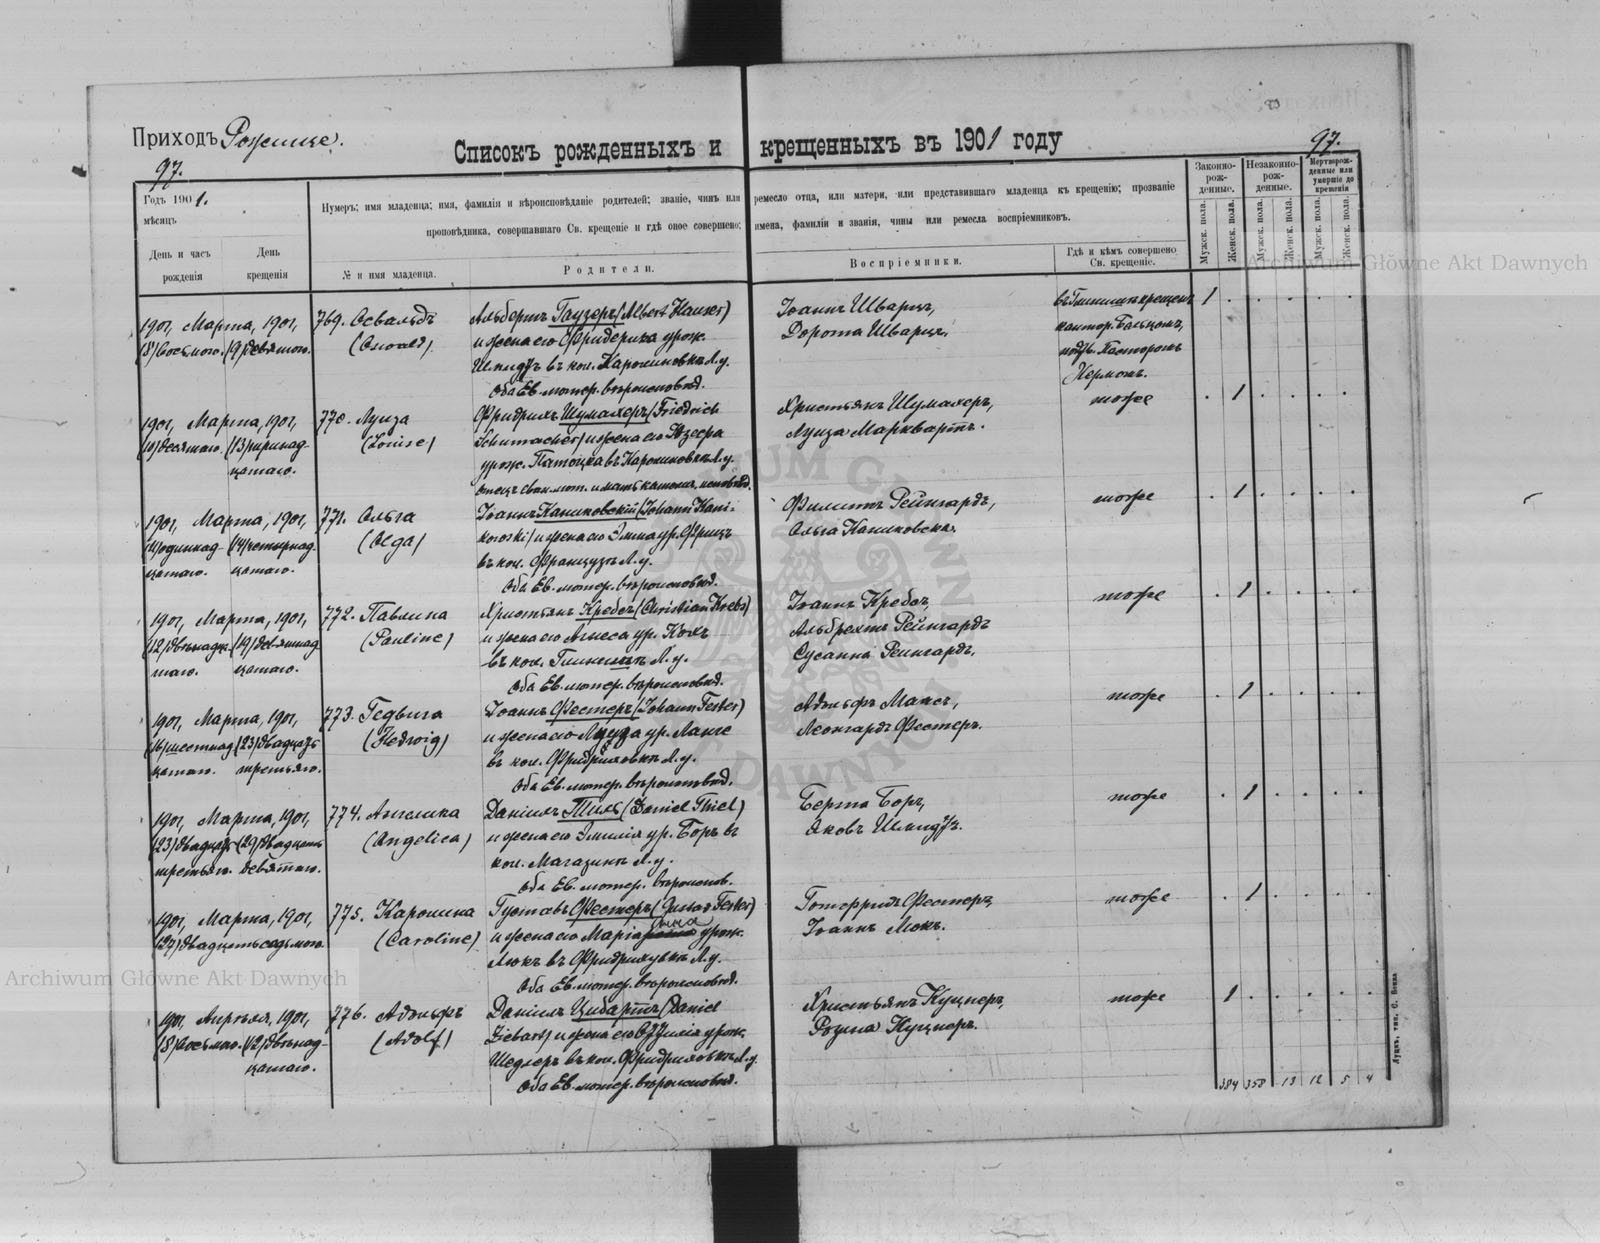 Приходъ Рожище.
Списокъ рожденныхъ и крещенныхъ въ 1901 году
97.
97.
Годъ 1901.
мѣсяцъ
День и часъ рожденія
День крещенія
Нумеръ; имя младенца; имя, фамилія и вѣроисповѣданіе родителей; званіе, чинъ или ремесло отца, или матери, или представившаго младенца къ крещенію; прозваніе
проповѣдника, совершавшаго Св. крещеніе и гдѣ оное совершено; имена, фамиліи и званія, чины или ремесла воспріемниковъ.
№ и имя младенца.
Родители.
Воспріемники.
Гдѣ и кѣмъ совершено Св. крещеніе.
Законно-рож-денные.
Незаконно-рож-денные.
Мертворож-денные или умершіе до крещенія
Мужск. пола.
Женск. пола.
Мужск. пола.
Женск. пола.
Мужск. пола.
Женск. пола.
1901, Марта, 1901,
(8) Восьмого. (9) девятого.
769. Освальдъ
(Oswald)
Альбертъ Гаузеръ (Albert Hauser)
и жена его Фридерика урож.
Шмидтъ въ кол. Каролиновкѣ Л. у.
Оба Ев. лютер. вѣроисповѣд.
Іоаннъ Шварцъ,
Дорота Шварцъ,
крещен
кантор.
Пасторомъ
Керmомъ.
1
1901, Марта, 1901,
(10) десятого. (13) тринад-
цатаго.
770. Луиза
(Louise)
Фридрихъ Шумахеръ (Friedrich
Schumacher) и жена его Юзефа
урож. въ Каролиновкѣ Л. у.
отецъ еван. лют. и мать католич. исповѣд.
Христьянъ Шумахеръ,
Луиза Марквартъ.
тоже
1
1901, Марта, 1901,
(11) одиннад- (14) четырнад-
цатаго. цатаго.
771. Ольга
(Olga)
Іоаннъ Каниковскій (Johann Kani-
kowski) и жена его Эмма ур. Фрицъ
въ кол. Французъ Л. у.
Оба Ев. лютер. вѣроисповѣд.
Филиппъ Рейнгардъ,
Ольга Каниковска.
тоже
1
1901, Марта, 1901,
(12) двѣнадца- (19) девятнад-
таго. цатаго.
772. Павлина
(Pauline)
Христьянъ Кребсъ (Christian Krebs)
и жена его Агнеса ур. Кохъ
въ кол. Л. у.
Оба Ев. лютер. вѣроисповѣд.
Іоаннъ Кребсъ,
Альбрехтъ Рейнгардъ
Сусанна Рейнгардъ,
тоже
1
1901, Марта, 1901,
(16) шестнад- (23) двадцать
цатаго. третьяго.
773. Гедвига
(Hedwig)
Іоаннъ Фестеръ (Johann Fester)
и жена его Луиза ур. Ланге
въ кол. Фридриховкѣ Л. у.
Оба Ев. лютер. вѣроисповѣд.
Адольфъ Максъ,
Леонгардъ Фестеръ.
тоже
1
1901, Марта, 1901,
(23) двадцать (29) двадцать
третьяго. девятаго.
774. Ангелика
(Angelica)
Даніилъ Тиль (Daniel Thiel)
и жена его Эмилія ур. Боръ въ
кол. Магазинъ Л. у.
Оба Ев. лютер. вѣроисповѣд.
Берта Боръ,
Яковъ Шмидтъ.
тоже
1
1901, Марта, 1901,
(27) двадцать седьмого.
775. Каролина
(Caroline)
Густавъ Фестеръ (Gustav Fester)
и жена его Марія Анна урож.
Люкъ въ Фридриховкѣ Л. у.
Оба Ев. лютер. вѣроисповѣд.
Готфридъ Фестеръ,
Іоаннъ Люкъ.
тоже
1
1901, Апрѣля, 1901,
(8) восьмого. (12) двѣнад-
цатаго.
776. Адольфъ
(Adolf)
Даніилъ Цибартъ (Daniel
Ziebart) и жена его Оттилія урож.
Шедлеръ въ кол. Фридриховкѣ Л. у.
Оба Ев. лютер. вѣроисповѣд.
Христьянъ Куцнеръ,
Розина Куцнеръ.
тоже
1
384 358 13 12 5 4
Archiwum Główne Akt Dawnych
Archiwum Główne Akt Dawnych